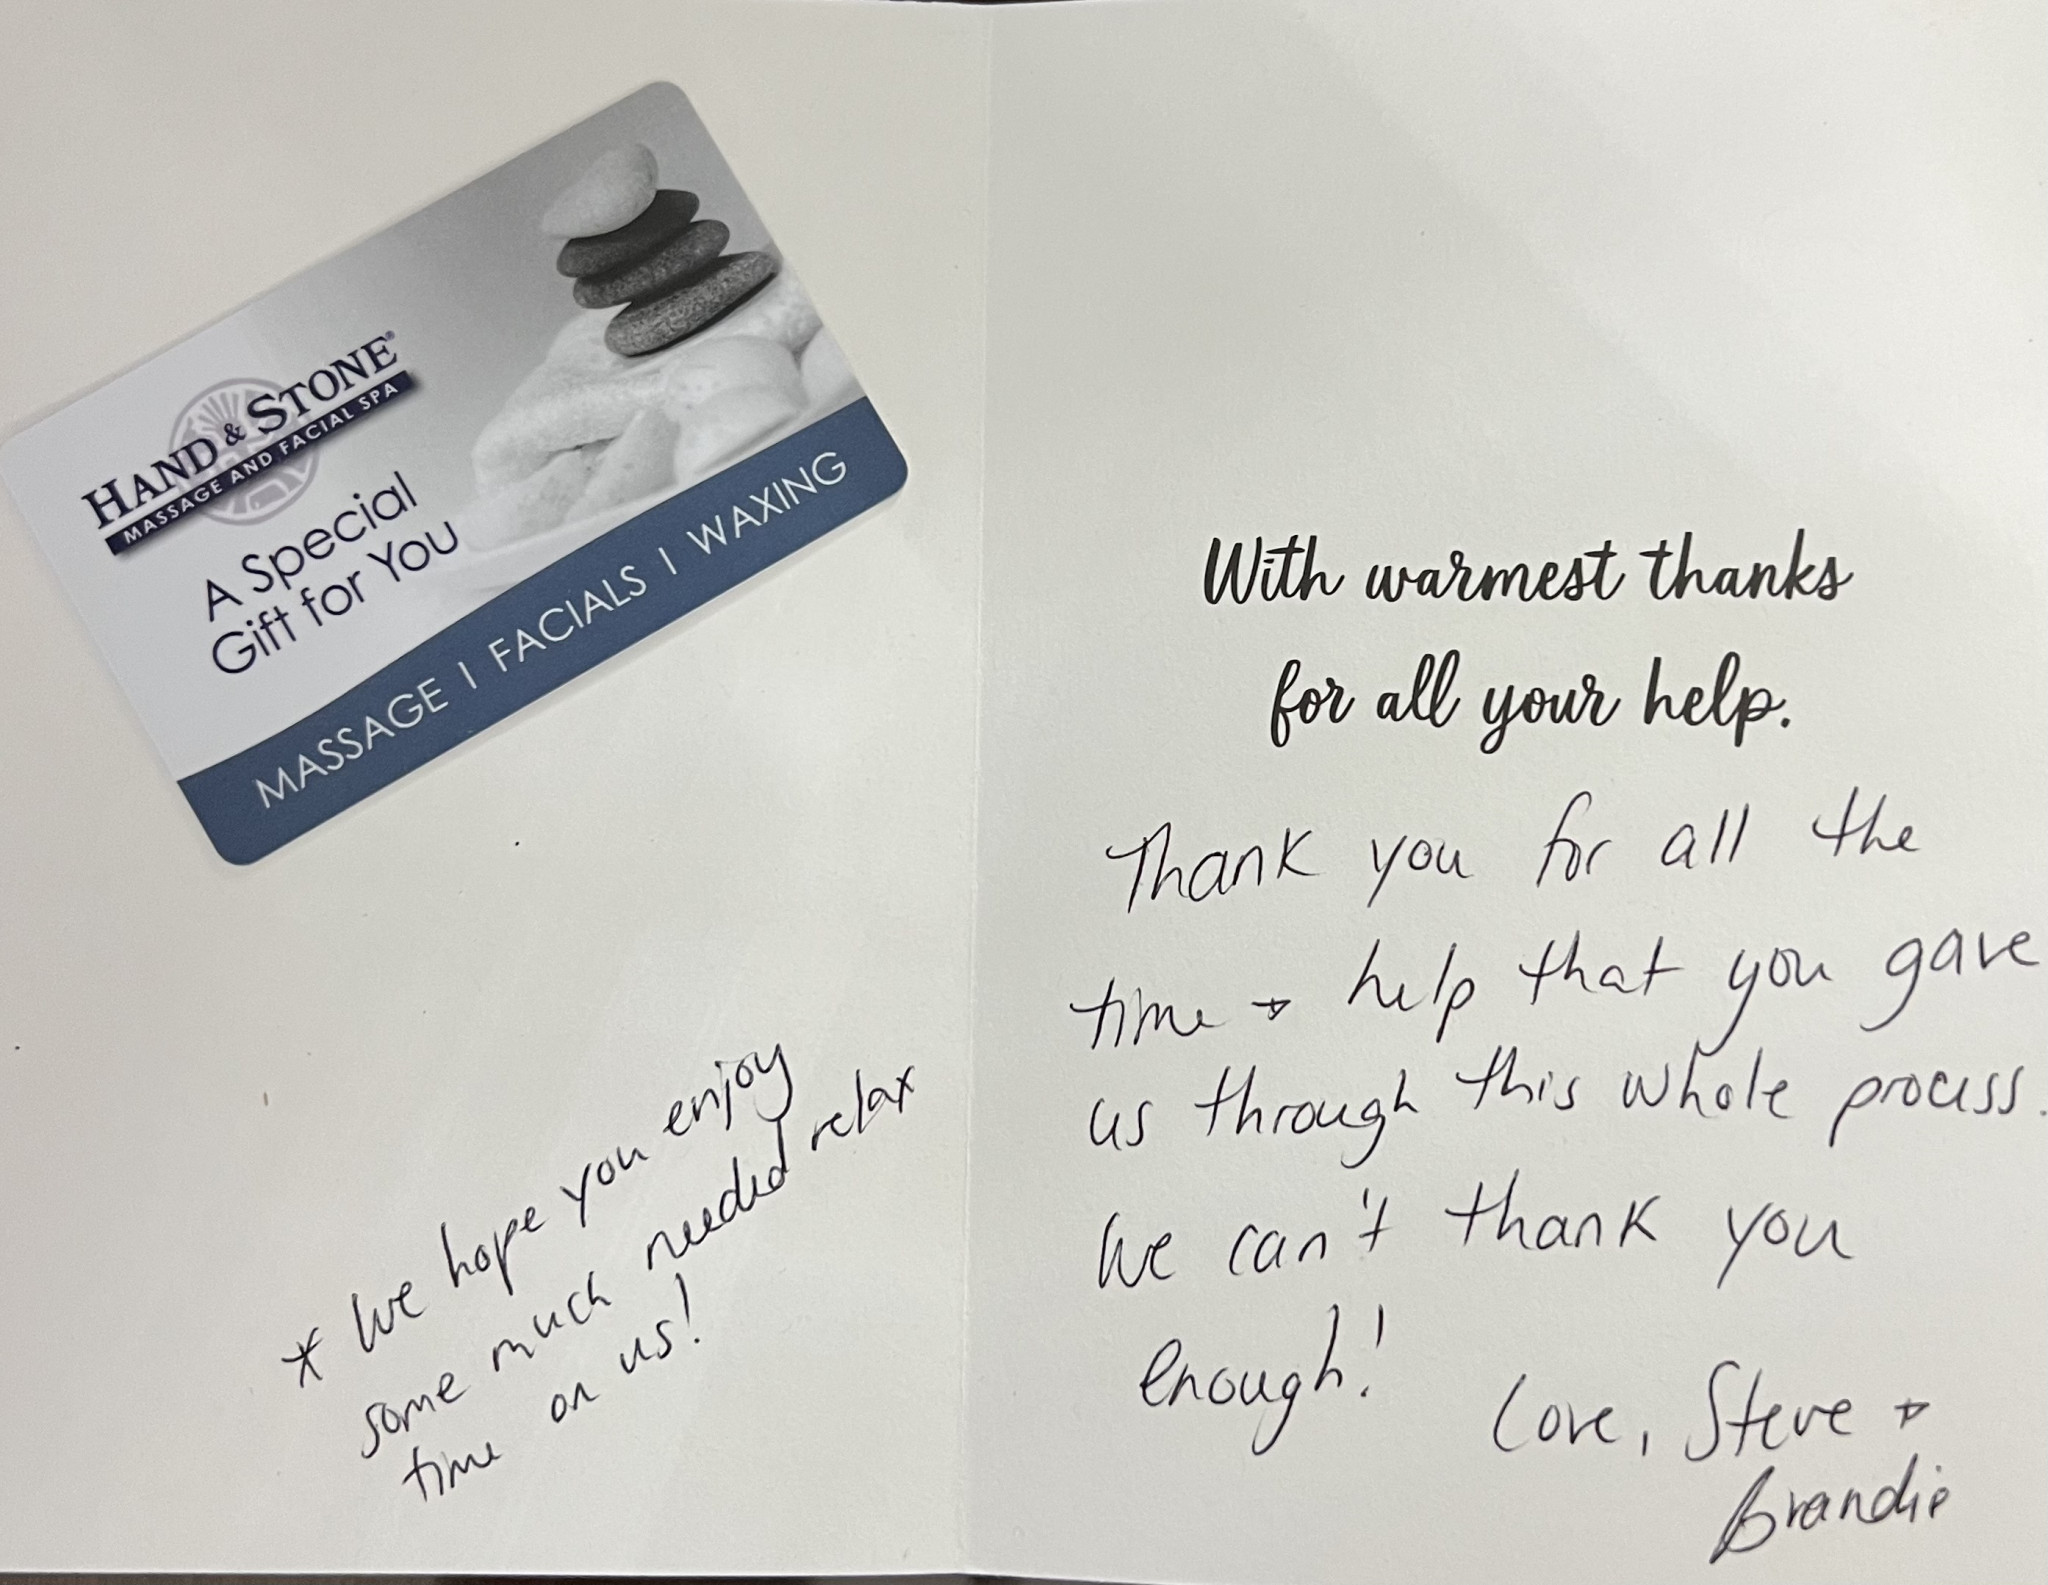 HAND & STONE®
MASSAGE AND FACIAL SPA
A Special
Gift for You
MASSAGE | FACIALS | WAXING
* We hope you enjoy
some much needed relax
time on us!
With warmest thanks
for all your help.
Thank you for all the
time + help that you gave
us through this whole process.
We can't thank you
enough!
Love, Steve +
Brandie